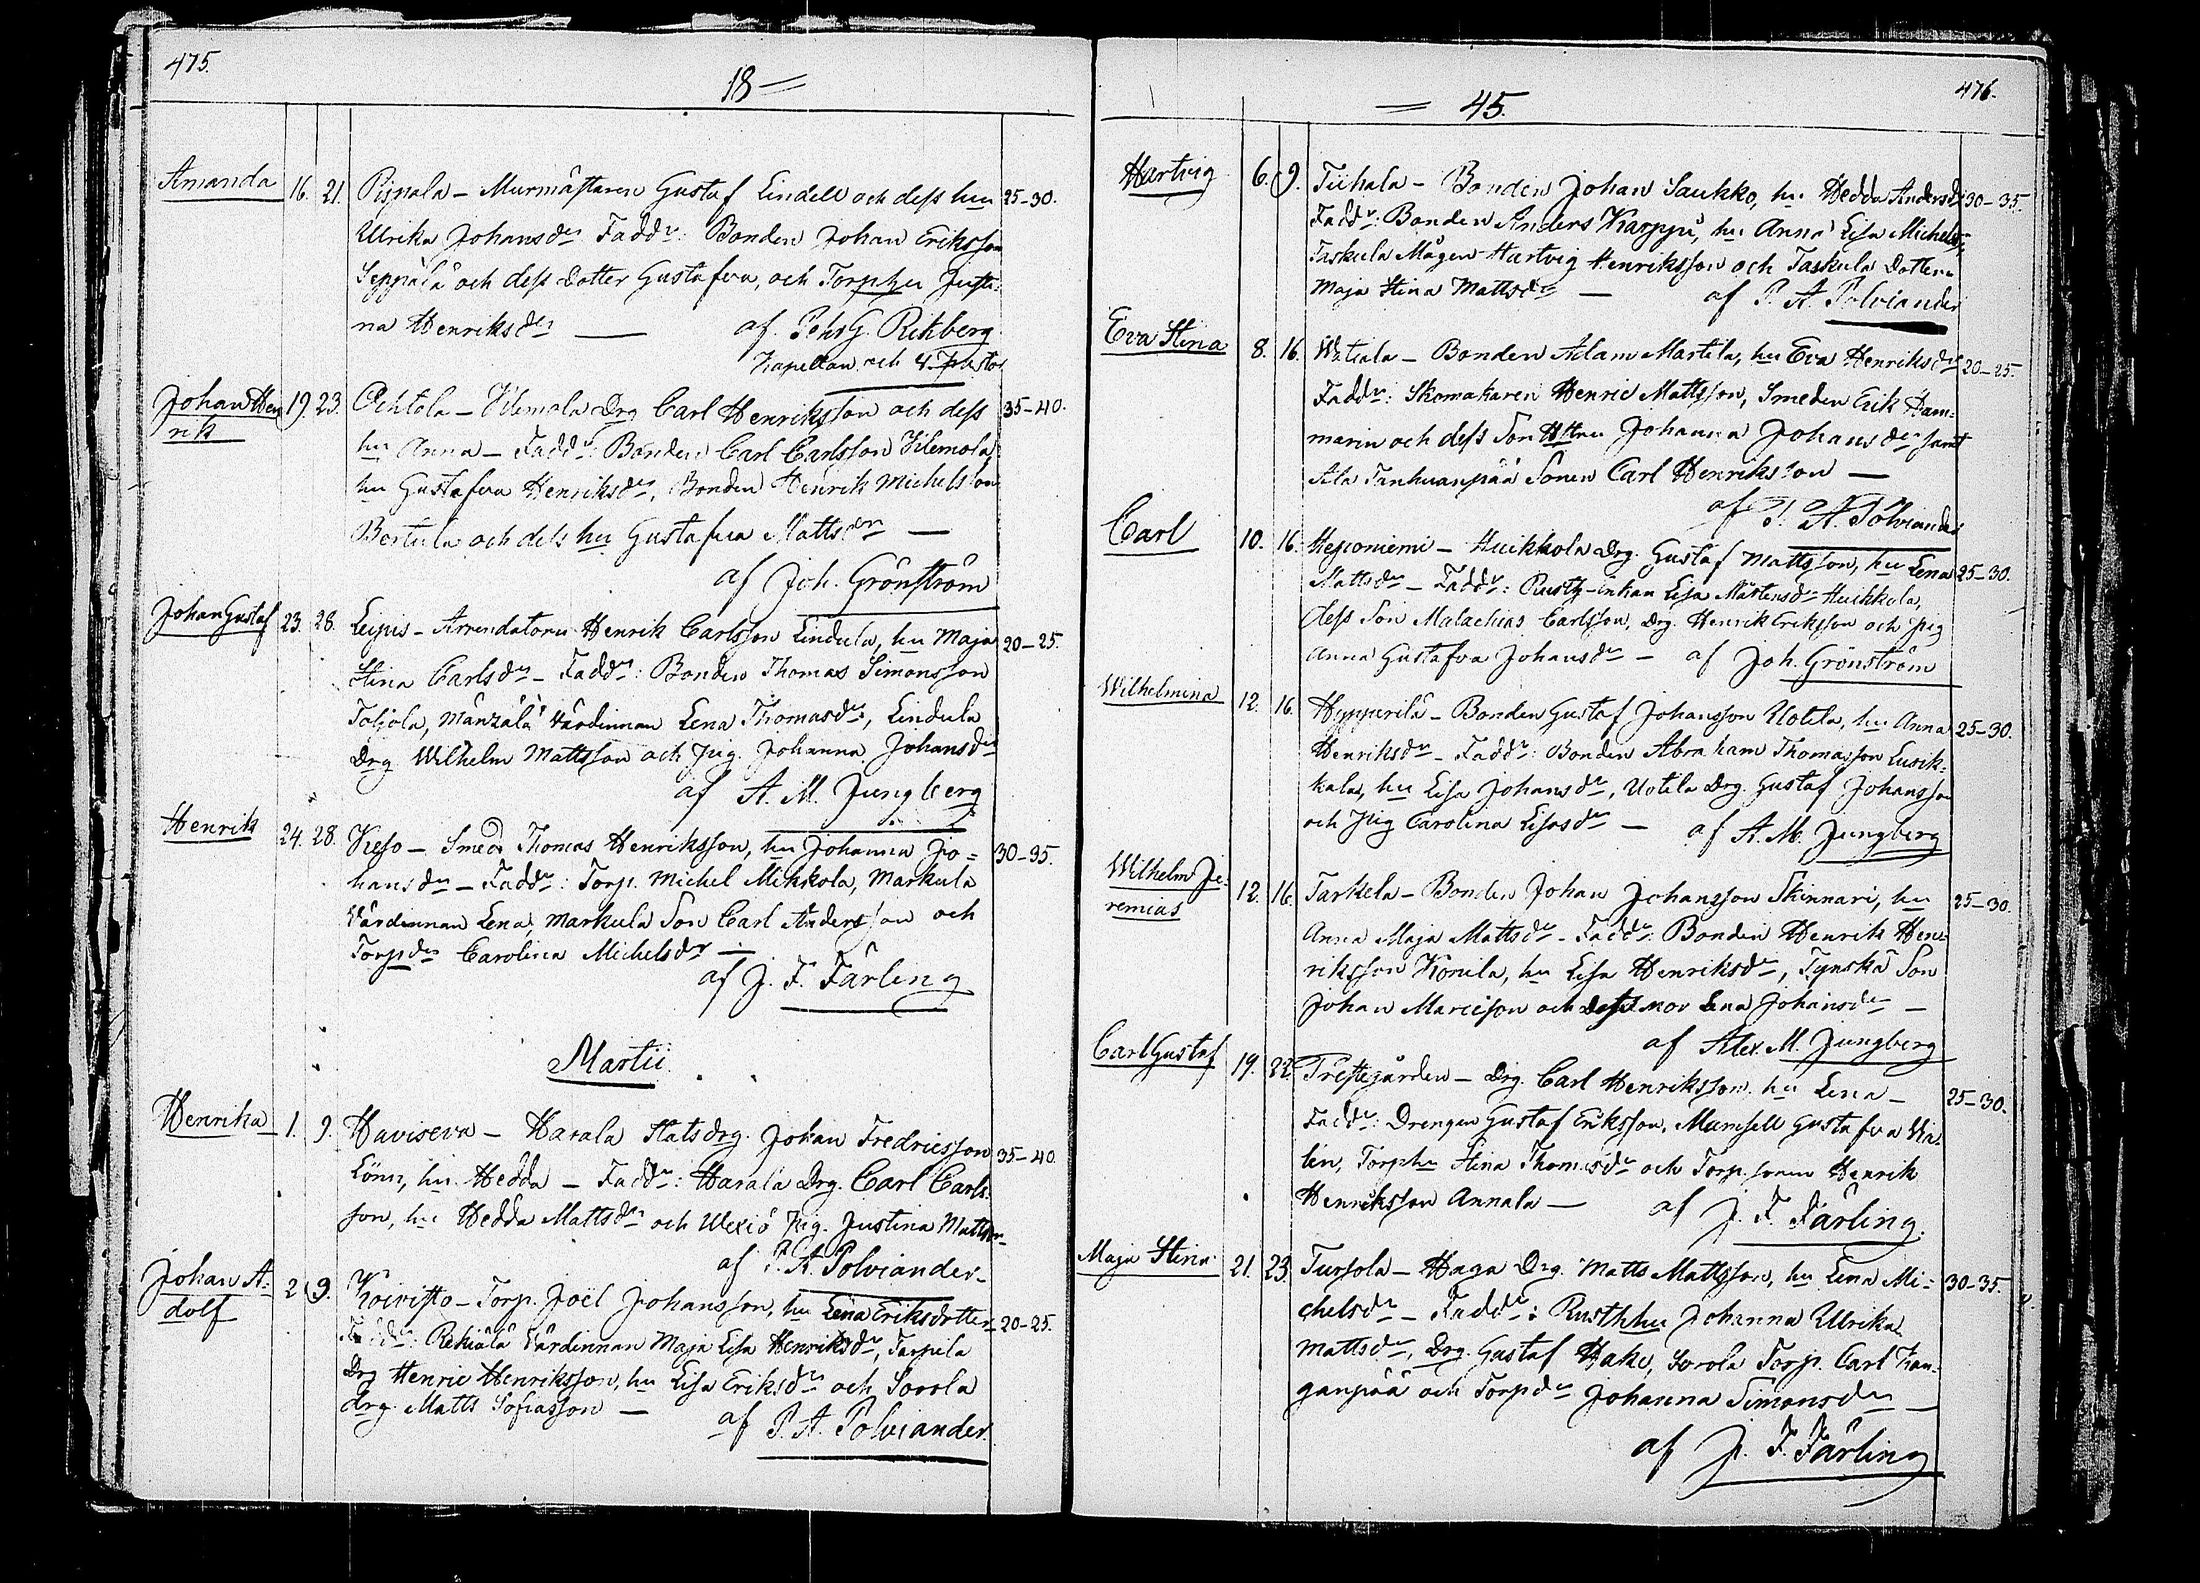 475.
18 =
Amanda 16. 21. Pispala - Murmästaren Gustaf Lindell och dess hu 25-30.
Ulrika Johansdr Faddr: Bonden Johan Eriksson
Seppälä och dess Dotter Gustafva, och Torphu Justi-
na Henriksdr — af Pehr G. Rikberg
Kapellan och V. Pastor
Johan Hen 19. 23. Ochtola - Yilemola Drg Carl Henriksson och dess 35-40.
rik
hu Anna - Faddr: Bonden Carl Carlsson Yilemola,
hu Gustafva Henriksdr, Bonden Henrik Michelsson
Bertula och dess hu Gustafva Mattsdr —
af Joh. Grönström
Johan Gustaf 23. 28. Leipis - Arrendatorn Henrik Carlsson Lindula, hu Maja 20-25.
Stina Carlsdr - Faddr: Bonden Thomas Simonsson
Toljola, Mänzälä Värdinnan Lena Thomasdr, Lindula
Drg Wilhelm Mattsson och Pig. Johanna Johansdr
af A. M. Jungberg
Henrik 24. 28. Keso - Smed Thomas Henriksson, hu Johanna Jo= 30-35.
hansdr - Faddr: Torp. Michel Mikkola, Markula
Värdinnan Lena, Markula Son Carl Andersson och
Torpdr Carolina Michelsdr —
af J. F. Färling
Martii
Henrika 1. 9. Haviseva - Harala Statsdrg. Johan Fredricsson 35-40.
Lönn, hu Hedda - Faddr: Harala Drg. Carl Carls-
son, hu Hedda Mattsdr och Wexiö Pig. Justina Mattsdr
af P. A. Polviander
Johan A= 2. 9. Koivisto - Torp. Joël Johansson, hu Lena Eriksdotter 20-25.
dolf
Faddr: Rekiälä Värdinnan Maja Lisa Henriksdr, Tarpila
Drg Henric Henriksson, hu Lisa Eriksdr och Sorola
drg. Matts Sofiasson —
af P. A. Polviander
476.
= 45.
Hartvig 6. 9. Tiihala - Bonden Johan Saukko, hu Hedda Andersdr 30-35.
Faddr: Bonden Anders Karppi, hu Anna Lisa Michelsdr,
Taskula Mågen Hartvig Henriksson och Taskula Dottern
Maja Stina Mattsdr — af P. A. Polviander
Eva Stina 8. 16. Watiala - Bonden Adam Martila, hu Eva Henriksdr 20-25.
Faddr: Skomakaren Henric Mattsson, Smeden Erik Ham-
marin och dess Son Hstru Johanna Johansdr samt
Ala Tanhuanpää Sonen Carl Henriksson —
af P. A. Polviander
Carl 10. 16. Heponiemi - Huikkola Drg. Gustaf Mattsson, hu Lena 25-30.
Mattsdr - Faddr: Rustg-inkan Lisa Mårtensdr Huikkola,
dess Son Malachias Carlsson, Drg. Henrik Eriksson och Pig
Anna Gustafva Johansdr - af Joh. Grönström
Wilhelmina 12. 16. Hyppärilä - Bonden Gustaf Johansson Uotila, hu Anna 25-30.
Henriksdr - Faddr: Bonden Abraham Thomasson Luvik-
kala, hu Lisa Johansdr, Uotila Drg. Gustaf Johansson
och Pig Carolina Lisasdr — af A. M. Jungberg
Wilhelm Je- 12. 16. Tarkela - Bonden Johan Johansson Skinnari, hu 25-30.
remias
Anna Maja Mattsdr - Faddr: Bonden Henrik Hen-
riksson Konila, hu Lisa Henriksdr, Tynska Son
Johan Maricson och dess mor Lena Johansdr —
af Alex. M. Jungberg
Carl Gustaf 19. 22. Prestegården - Drg. Carl Henriksson, hu Lena - 25-30.
Faddr: Drengen Gustaf Eriksson, Mamsell Gustafva Wa-
lin, Torphu Stina Thomasdr och Torp. sonen Henrik
Henriksson Annala — af J. F. Färling.
Maja Stina 21. 23. Tursola - Haga Drg. Matts Mattsson, hu Lena Mi- 30-35.
chelsdr - Faddr: Rusthhu Johanna Ulrika
Mattsdr, Drg. Gustaf Hake, Sorola Torp. Carl Kan-
ganpää och Torpdr Johanna Simonsdr —
af J. F. Färling